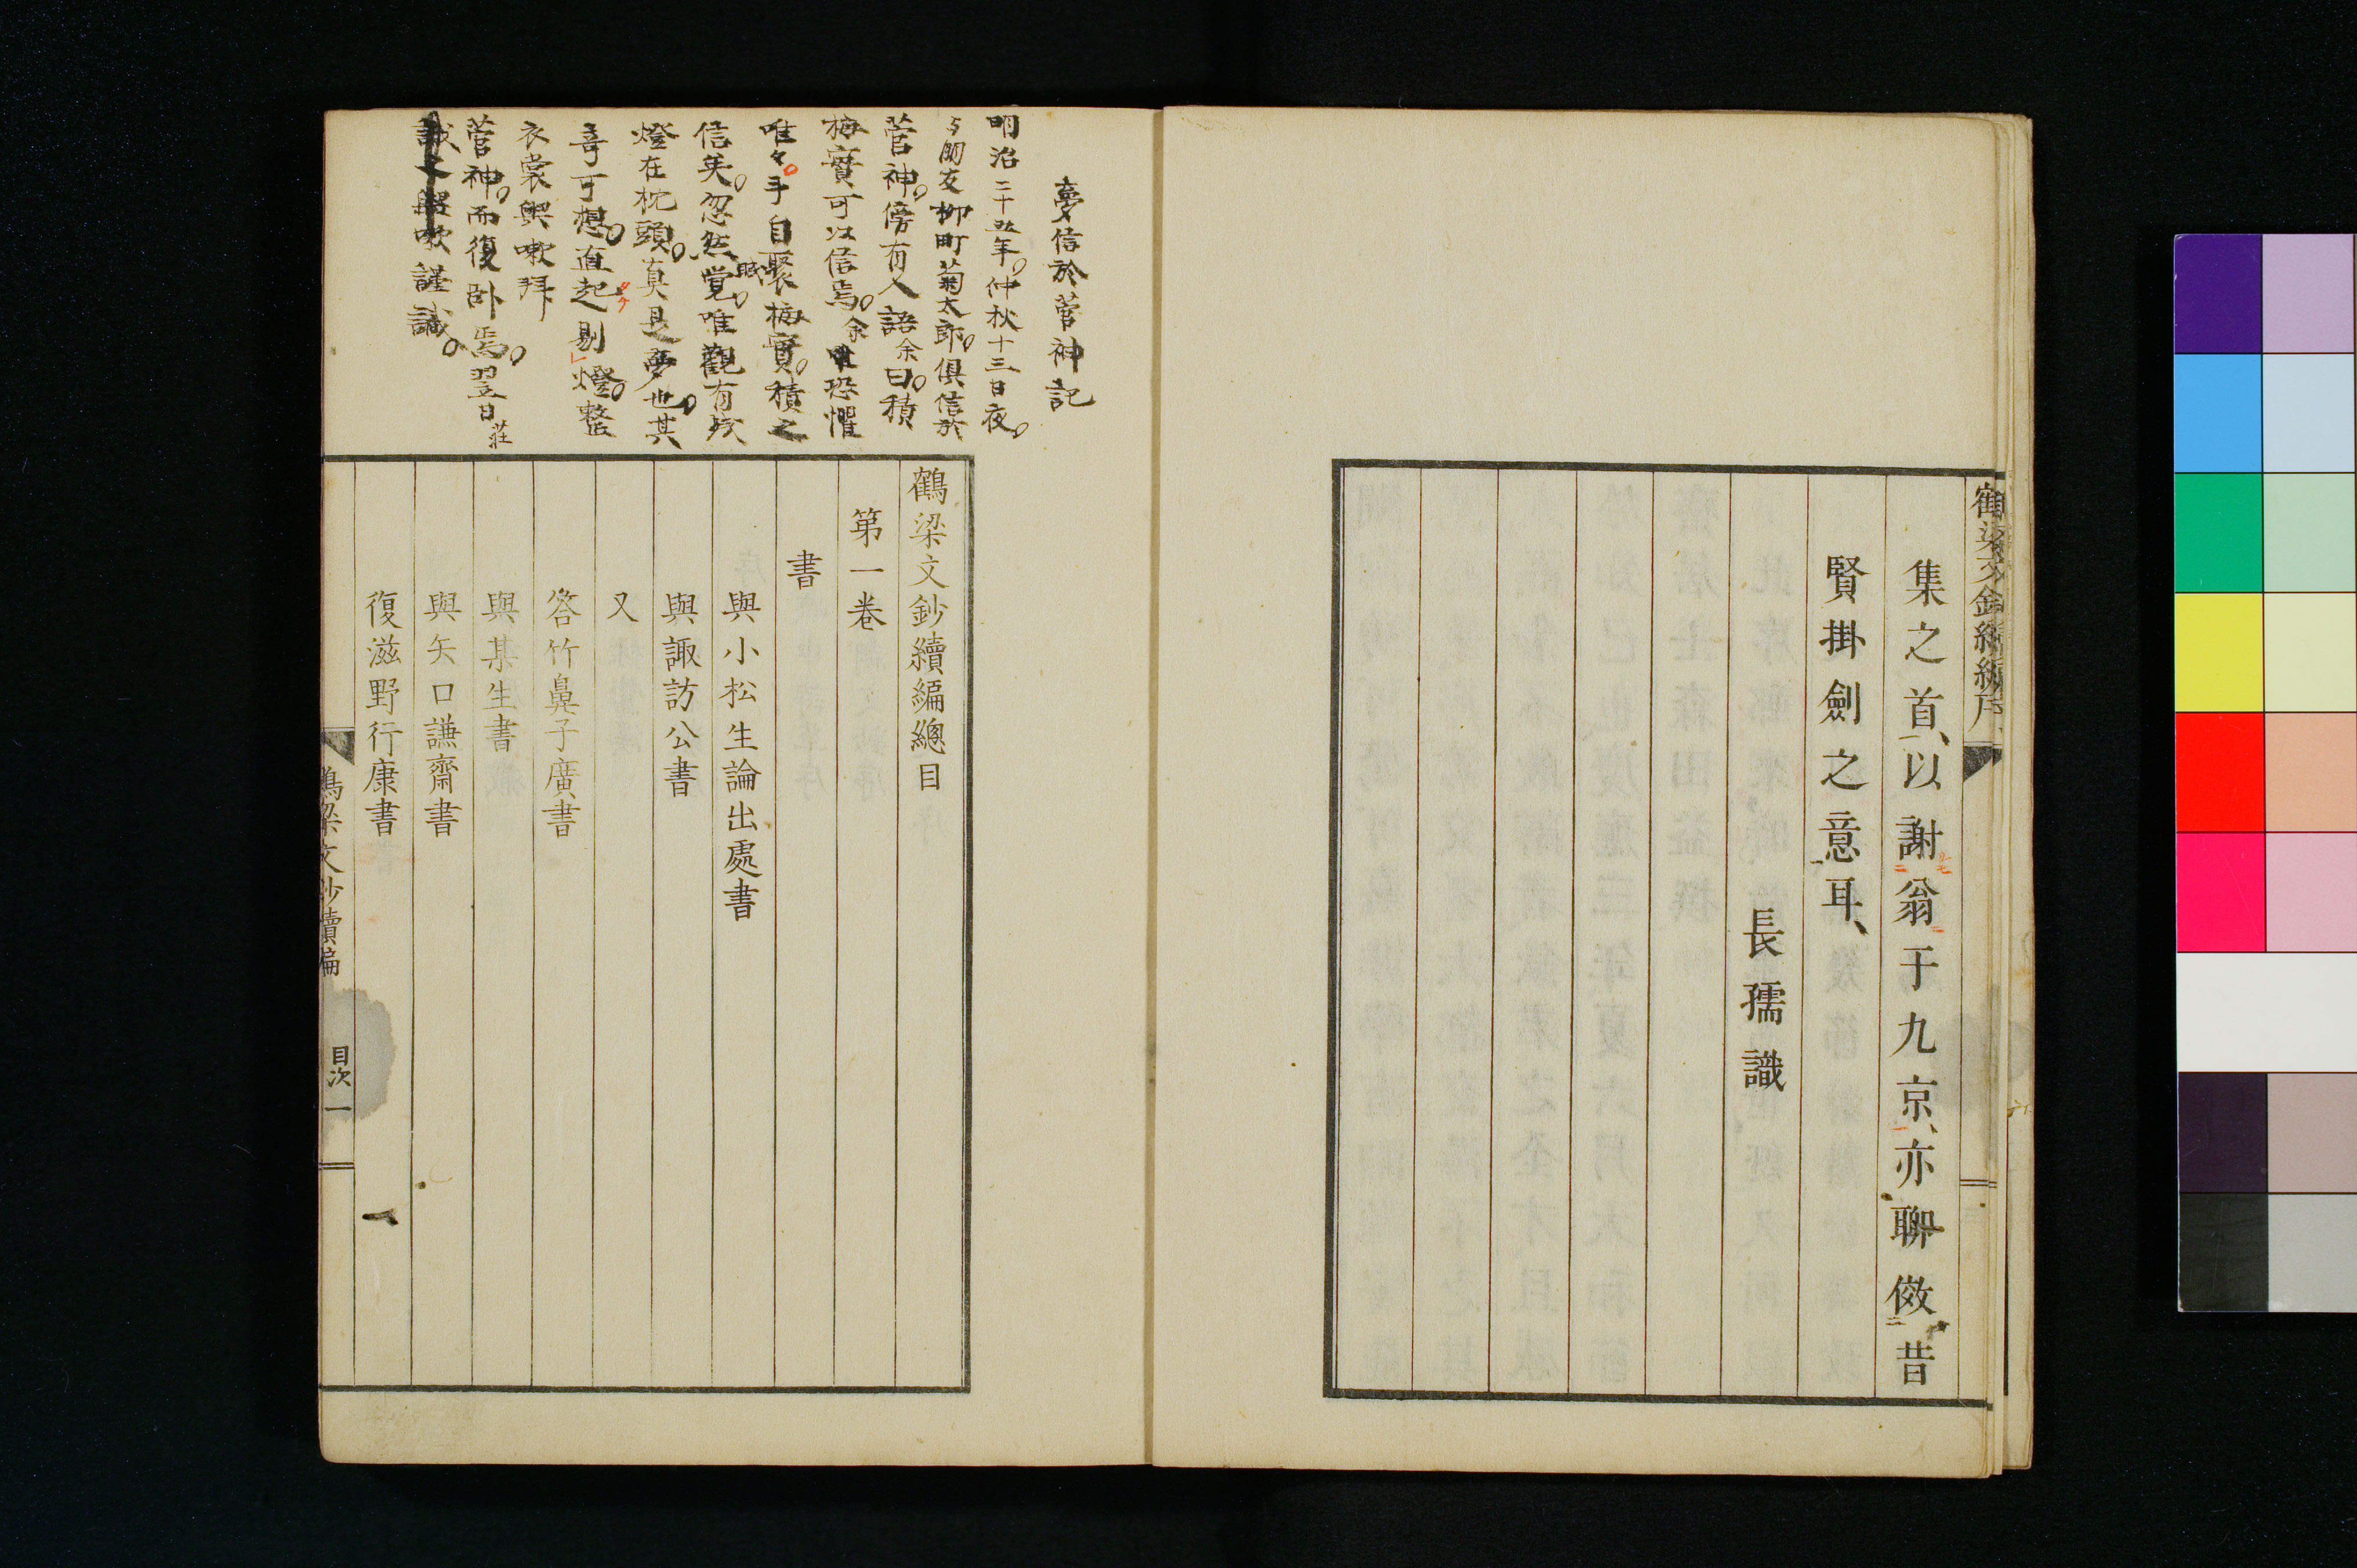 鶴梁文鈔續編序
集之首、以謝翁于九京、亦聊倣昔
賢掛劍之意耳、
長孺識
夢信於菅神記
明治二十五年。仲秋十三日夜。
与朋友柳町菊太郎。俱信於
菅神。傍有人語余曰。積
梅實可以信焉。余唯恐懼
唯々。手自聚梅實。積之
信矣。忽然覚眠。唯觀有残
燈在枕頭。真是夢也。其
奇可想。直起剔燈。整
衣裳與嗽拜
菅神。而復卧焉。翌日莊
嗽謹識。
鶴梁文鈔續編總目
第一卷
書
與小松生論出處書
與諏訪公書
又
答竹鼻子廣書
與某生書
與矢口謙齋書
復滋野行康書
鶴梁文鈔續編
目次
一